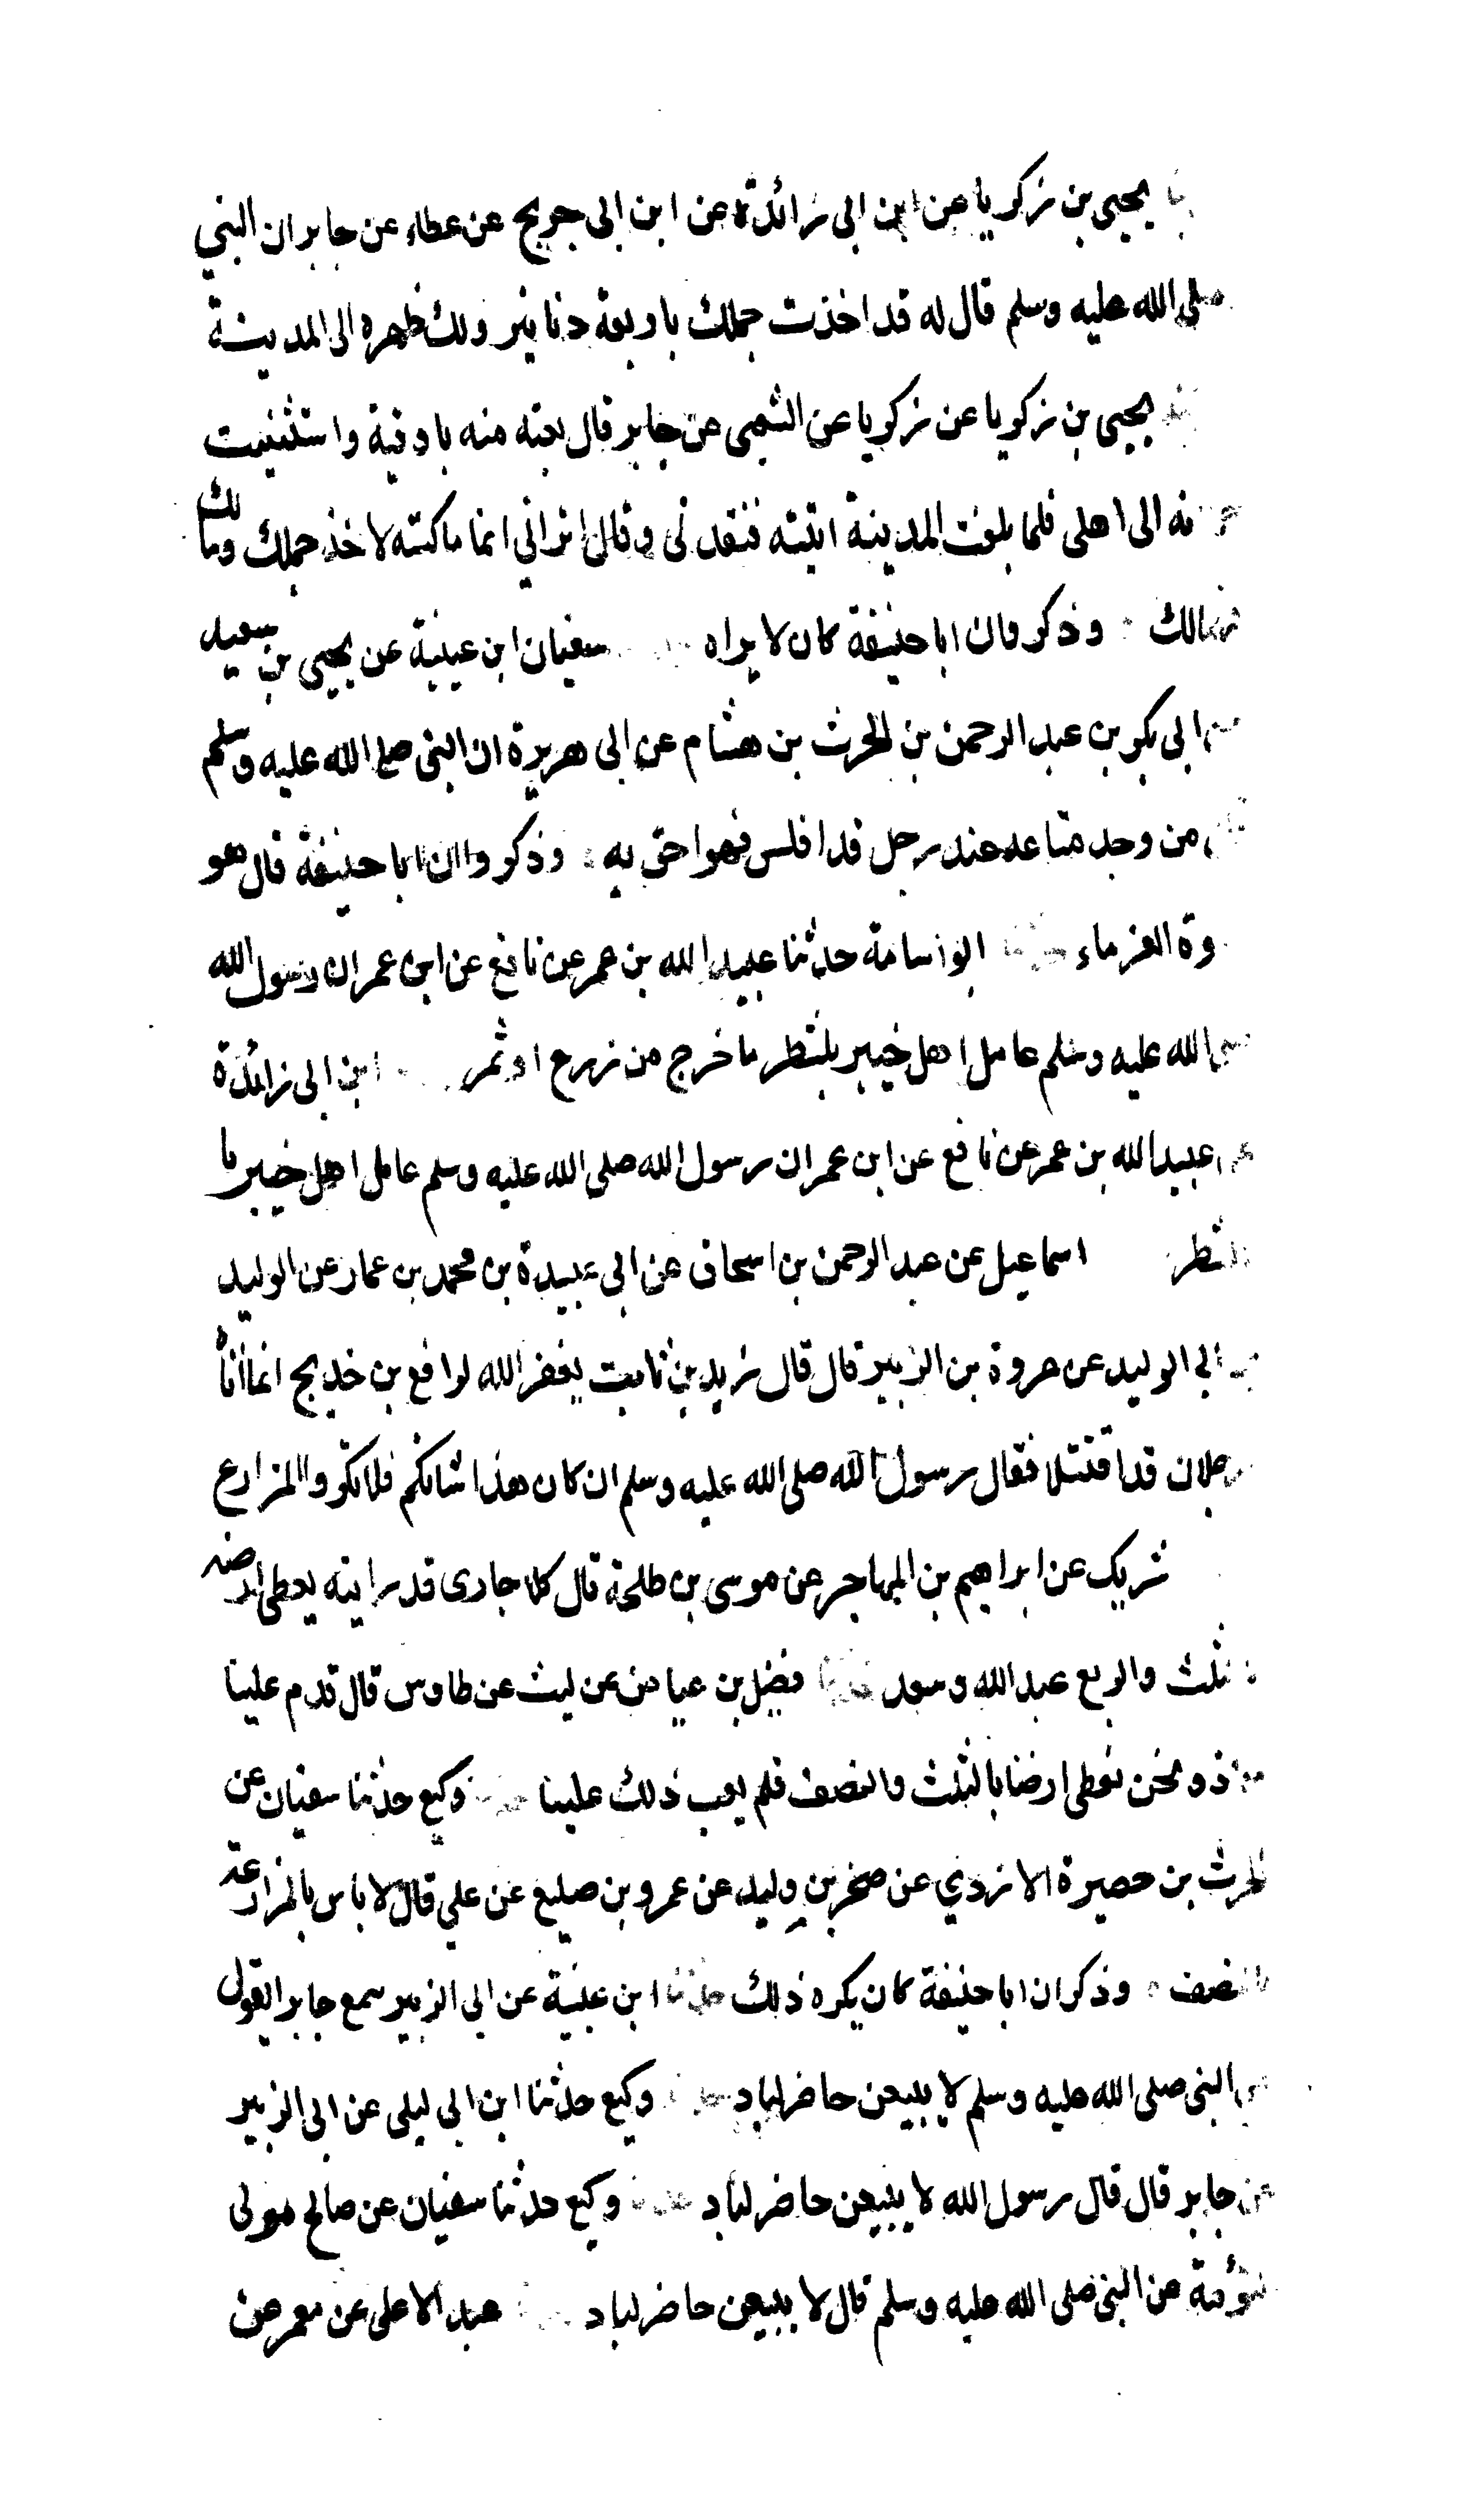 يحيى بن زكريا عن ابن ابى زائدة عن ابن ابى جريج عن عطاء عن جابر ان النبي
صلى الله عليه وسلم قال له قد اخذت جملك باربعة دنانير ولك ظهره الى المدينة
يحيى بن زكريا عن زكريا عن الشعبى عن جابر قال بعته منه باوقية واستثنيت
الى اهلى فلما بلغت المدينة اتيته فنقدنى وقال اترانى انما ماكسته لاخذ جملك ومالك
فهمالك وذكروان ابا حنيفة كان لا يراه سفيان ابن عيينة عن يحيى بن سعيد
ابى بكر بن عبد الرحمن بن الحرث بن هشام عن ابى هريرة ان النبى صلى الله عليه وسلم
من وجد متاعه عند رجل قد افلس فهو احق به وذكروا ان ابا حنيفة قال هو
وة الغرماء ابو اسامة حدثنا عبيد الله بن عمر عن نافع عن ابن عمر ان رسول الله
الله عليه وسلم عامل اهل خيبر بشطر ما خرج من زرع او ثمر ابن ابى زائدة
عن عبيد الله بن عمر عن نافع عن ابن عمر ان رسول الله صلى الله عليه وسلم عامل اهل خيبر با
لشطر اسماعيل عن عبد الرحمن بن اسحاق عن ابى عبيدة بن محمد بن عمار عن الوليد
ابى الوليد عن عروة بن الزبير قال قال زيد بن ثابت يغفر الله لرافع بن خديج انما اتاه
رجلان قد اقتتلا فقال رسول الله صلى الله عليه وسلم ان كان هذا شانكم فلا تكروا المزارع
شريك عن ابراهيم بن المهاجر عن موسى بن طلحة قال كلا جارى قد رايته يعطى ارضه
بالثلث والربع عبد الله وسعد حدثنا فضيل بن عياض عن ليث عن طاوس قال قدم علينا
معاذ ونحن نعطى ارضنا بالثلث والنصف فلم يعب ذلك علينا وكيع حدثنا سفيان عن
الحرث بن حصيرة الازدي عن صخر بن وليد عن عمرو بن صليع عن علي قال لا باس بالمزارعة
بالنصف وذكر ان ابا حنيفة كان يكره ذلك حدثنا ابن عيينة عن ابى الزبير سمع جابرا يقول
النبى صلى الله عليه وسلم لا يبيعن حاضر لباد وكيع حدثنا ابن ابى ليلى عن ابى الزبير
عن جابر قال قال رسول الله لا يبيعن حاضر لباد وكيع حدثنا سفيان عن صالح مولى
التؤمة عن النبى صلى الله عليه وسلم قال لا يبيعن حاضر لباد عبد الاعلى عن معمر عن